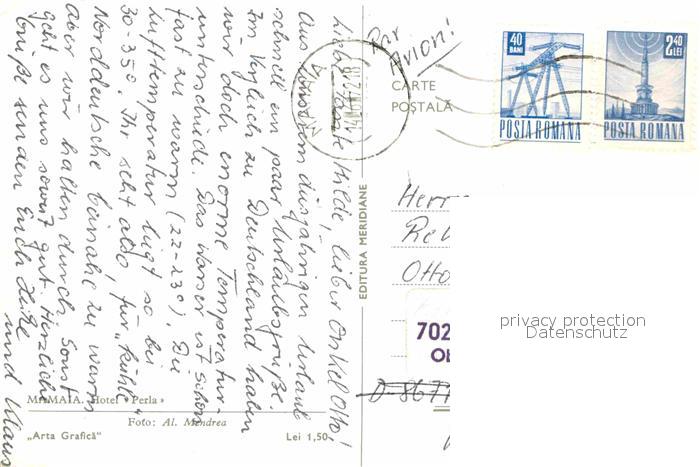 Liebe Tante Hilde, lieber Onkel Otto!
Aus unserem diesjährigen Urlaub
schnell ein paar Urlaubsgrüße.
Im Vergleich zu Deutschland haben
wir doch enorme Temperatur-
unterschiede. Das Wasser ist schon
fast zu warm (22-23°) Die
Lufttemperatur liegt so bei
30-35°. Ihr seht also, für "kühle"
Norddeutsche beinahe zu warm
aber wir halten durch. Sonst
geht es uns soweit gut. Herzliche
Grüße senden Euch Heike
und Klaus
MAMAIA. Hotel «Perla»
Foto: Al. Mendrea
„Arta Grafică"
Lei 1,50
EDITURA MERIDIANE
Par
Avion!
CARTE
POSTALA
MAMAIA
40
BANI
POSTA ROMANA
2,40
LEI
POSTA ROMANA
Herr
Otto
702
D-8677
privacy protection
Datenschutz